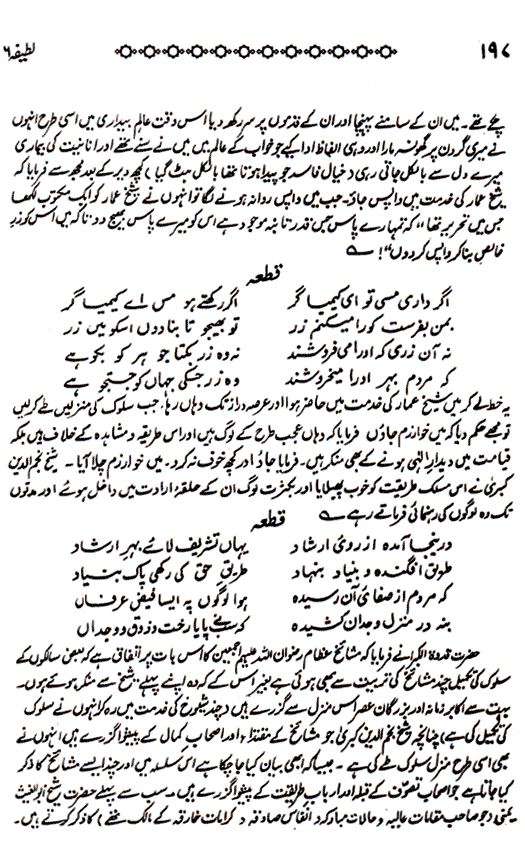 ۱۹۷
لطیفہ ۶
چکے تھے۔ میں ان کے سامنے پہنچا اور ان کے قدموں پر سر رکھ دیا اس وقت عالم بیداری میں اسی طرح انہوں
نے میری گردن پر گھونسہ مارا اور وہی الفاظ ادا کیے جو خواب کے عالم میں میں نے سنے تھے اور انانیت کی بیماری
میرے دل سے بالکل جاتی رہی (خیال فاسد جو پیدا ہوتا تھا بالکل مٹ گیا) کچھ دیر کے بعد مجھ سے فرمایا کہ
شیخ عمار کی خدمت میں واپس جاؤ۔ جب میں واپس روانہ ہونے لگا تو انہوں نے شیخ عمار کو ایک مکتوب لکھا
جس میں تحریر تھا "کہ تمہارے پاس جس قدر تانبہ موجود ہے اس کو میرے پاس بھیج دو تاکہ میں اس کو زرِ
خالص بنا کر واپس کر دوں"!
قطعہ
اگر داری مسی تو ای کیمیا گر اگر رکھتے ہو مس اے کیمیا گر
بمن بفرست کورا میکنم زر تو بھیجو تا بنا دوں اسکو میں زر
نہ آن زری کہ اورا می فروشند نہ وہ زر بکتا جو ہر کو بکو ہے
کہ مردم بہر اورا میخروشند وہ زر جسکی جہاں کو جستجو ہے
یہ خط لے کر میں شیخ عمار کی خدمت میں حاضر ہوا اور عرصہ دراز تک وہاں رہا۔ جب سلوک کی منزلیں طے کر لیں
تو مجھے حکم دیا کہ میں خوارزم جاؤں فرمایا کہ وہاں عجب طرح کے لوگ ہیں اور اس طریقہ و مشاہدہ کے خلاف ہیں بلکہ
قیامت میں دیدارِ الٰہی ہونے کے بھی منکر ہیں۔ فرمایا جاؤ اور کچھ خوف نہ کرو۔ میں خوارزم چلا آیا۔ شیخ نجم الدین
کبریٰ نے اس مسلک طریقت کو خوب پھیلایا اور بکثرت لوگ ان کے حلقۂ ارادت میں داخل ہوئے اور مدتوں
تک وہ لوگوں کی رہنمائی فرماتے رہے۔
قطعہ
درینجا آمدہ از روی ارشاد یہاں تشریف لائے بہرِ ارشاد
طریق افگندہ و بنیاد بنہاد طریقِ حق کی رکھی پاک بنیاد
کہ مردم از صفای آن رسیدہ ہوا لوگوں پہ ایسا فیضِ عرفاں
بنہ در منزل وجدان کشیدہ کہ سب نے پایا رخت و ذوق و وجداں
حضرت قدوۃ الکبرا نے فرمایا کہ مشائخ عظام رضوان اللہ علیہم اجمعین کا اس بات پر اتفاق ہے کہ بعض سالکوں کے
سلوک کی تکمیل چند مشائخ کی تربیت سے بھی ہوتی ہے بغیر اس کے کہ وہ اپنے پہلے شیخ سے منکر ہوئے ہوں۔
بہت سے اکابر زمانہ اور بزرگان عصر اس منزل سے گزرے ہیں (چند شیوخ کی خدمت میں رہ کر انہوں نے سلوک
کی تکمیل کی ہے) چنانچہ شیخ نجم الدین کبریٰ جو مشائخ کے مقتدا اور اصحاب کمال کے پیشوا گزرے ہیں انہوں نے
بھی اسی طرح منزل سلوک طے کی ہے۔ جیسا کہ ابھی بیان کیا جا چکا ہے اس سلسلہ میں اور چند ایسے مشائخ کا ذکر
کیا جاتا ہے جو اصحاب تصوف کے قبلہ اور ارباب طریقت کے پیشوا گزرے ہیں۔ سب سے پہلے حضرت شیخ ابو الغیث
یمنی (جو صاحب مقامات عالیہ و حالات مبارکہ و انفاس صادقہ و کرامات خارقہ کے مالک تھے) کا ذکر کرتے ہیں۔